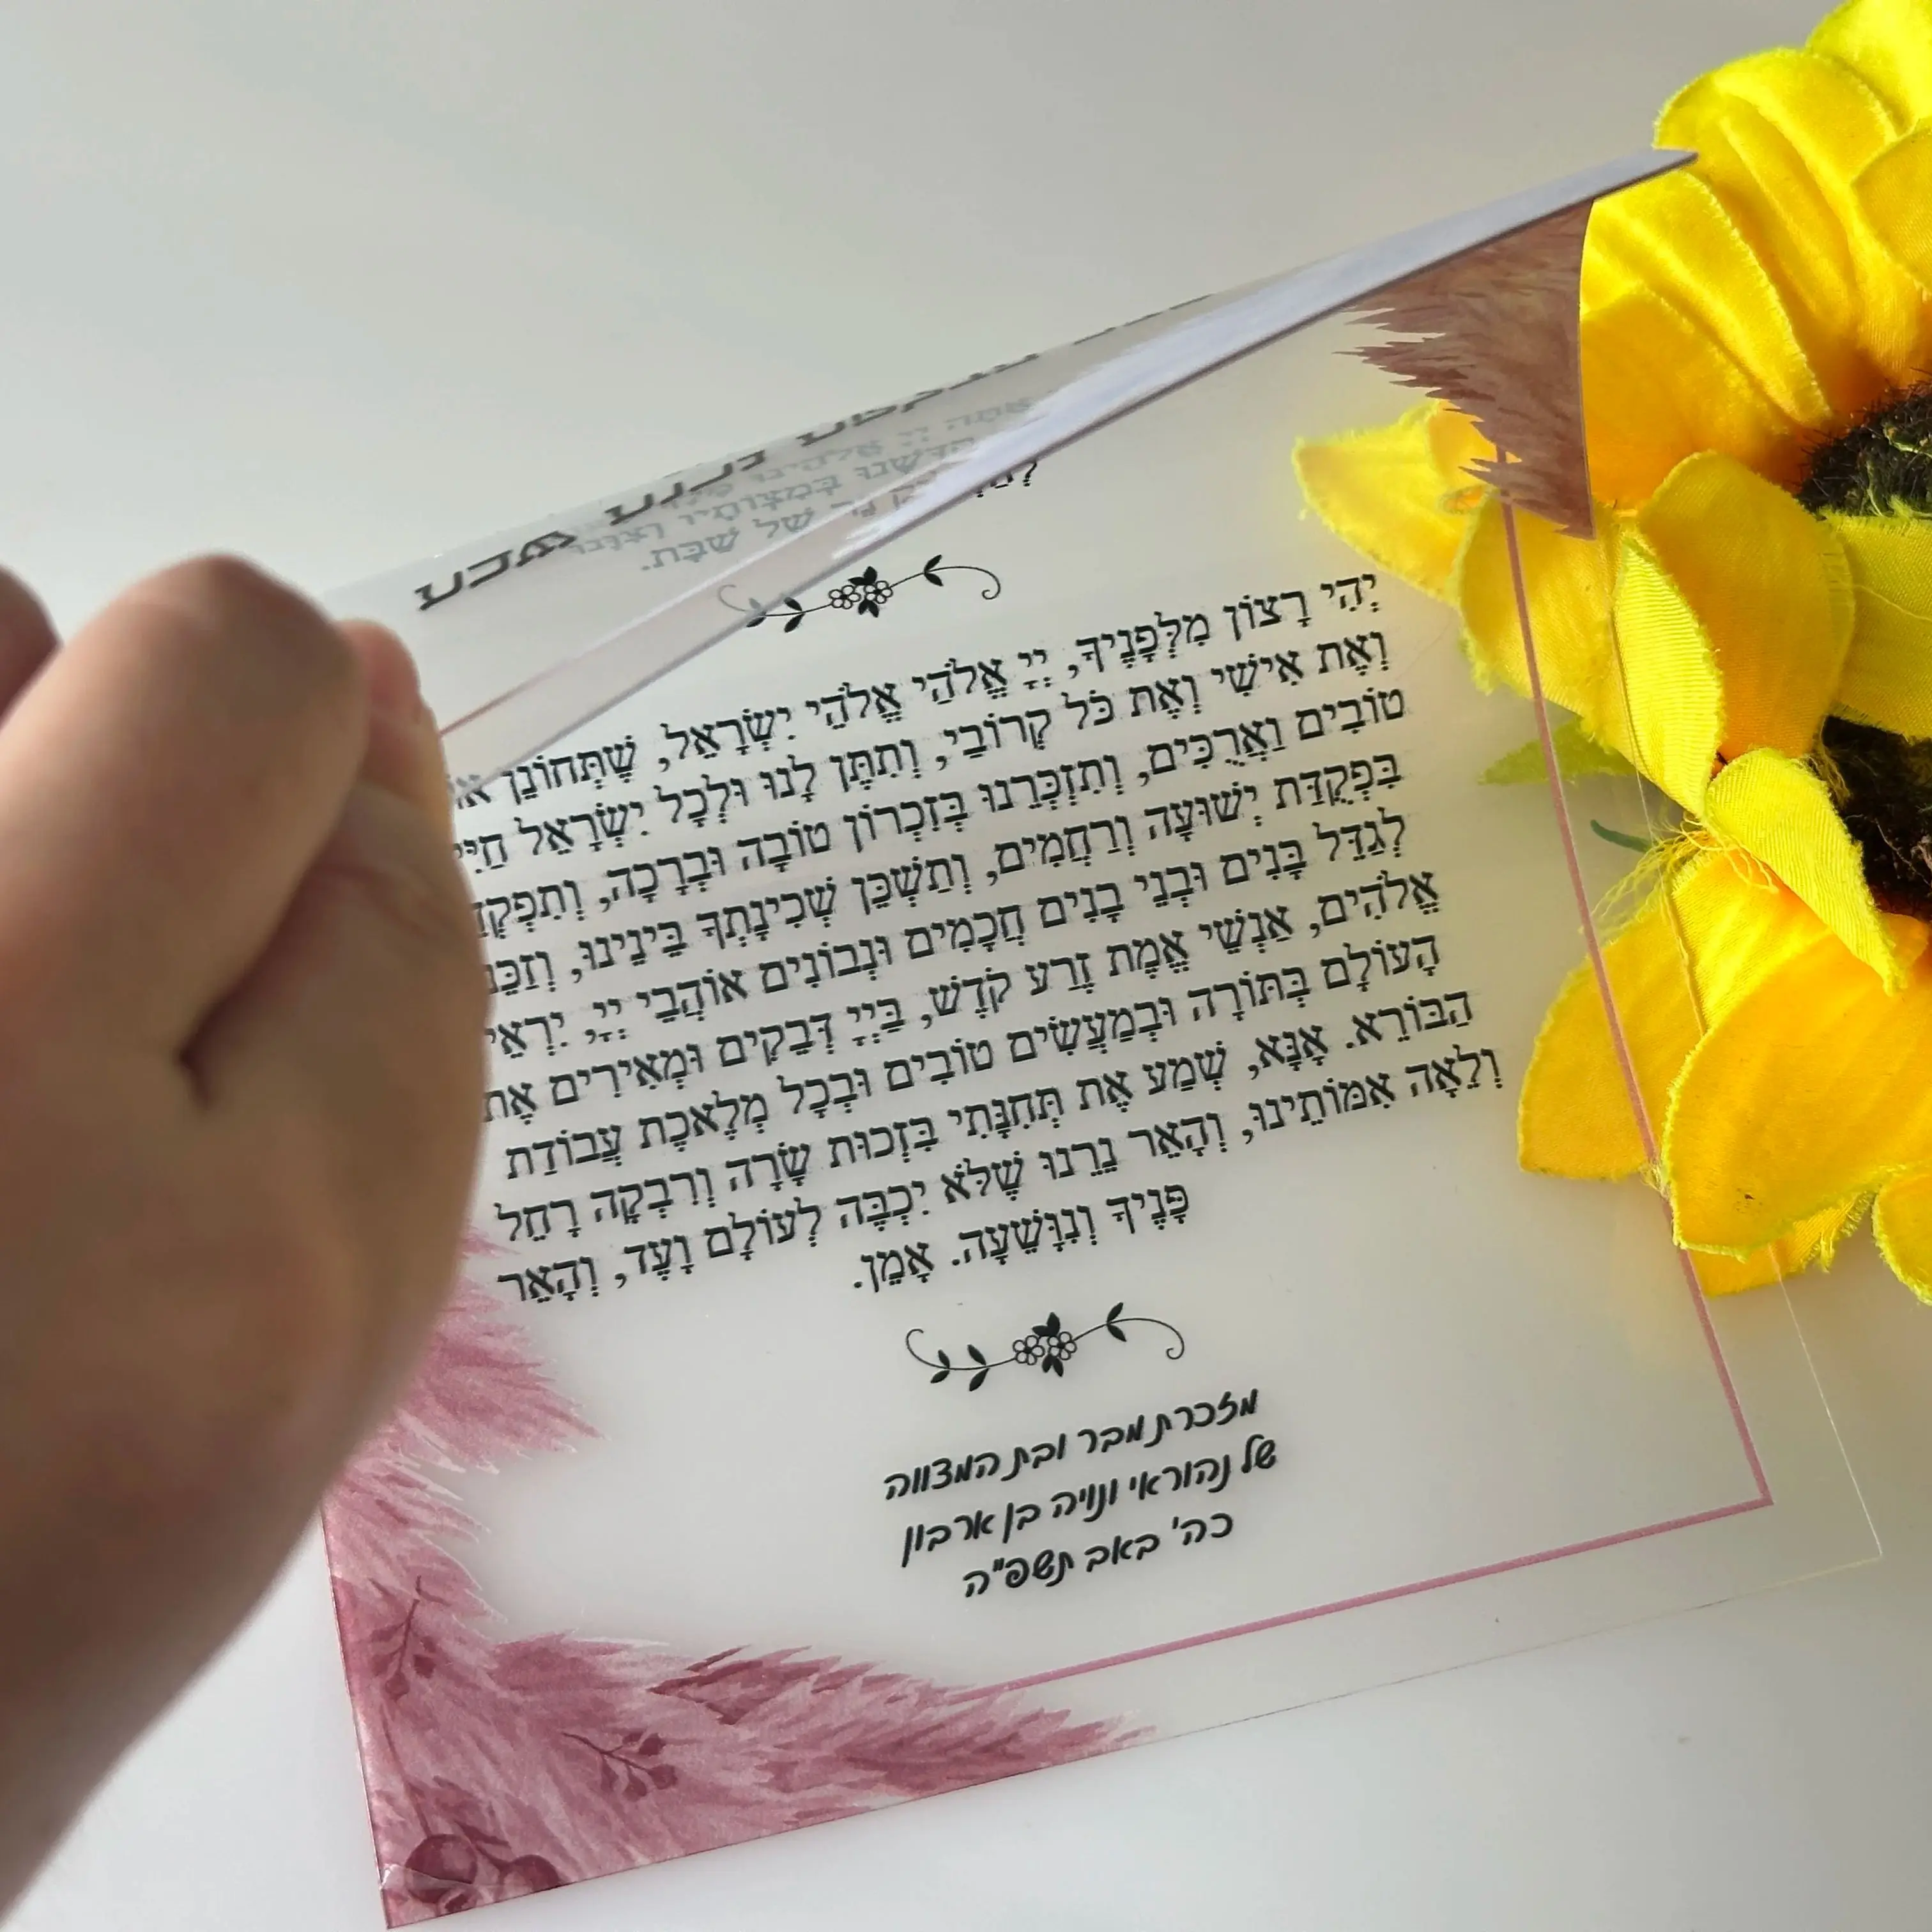 של שבת.
יְהִי רָצוֹן מִלְּפָנֶיךָ, יְיָ אֱלֹהַי אֱלֹהֵי יִשְׂרָאֵל, שֶׁתְּחוֹנֵן
וְאֶת אִישִׁי וְאֶת כֹּל קְרוֹבַי, וְתִתֶּן לָנוּ וּלְכָל יִשְׂרָאֵל
טוֹבִים וַאֲרֻכִּים, וְתִזְכְּרֵנוּ בְּזִכְרוֹן טוֹבָה וּבְרָכָה,
בִּפְקֻדַּת יְשׁוּעָה וְרַחֲמִים, וְתַשְׁכֵּן שְׁכִינָתְךָ בֵּינֵינוּ,
לְגַדֵּל בָּנִים וּבְנֵי בָנִים חֲכָמִים וּנְבוֹנִים אוֹהֲבֵי יְיָ, יִרְאֵי
אֱלֹהִים, אַנְשֵׁי אֱמֶת זֶרַע קֹדֶשׁ, בַּיְיָ דְּבֵקִים וּמְאִירִים אֶת
הָעוֹלָם בְּתּוֹרָה וּבְמַעֲשִׂים טוֹבִים וּבְכָל מְלֶאכֶת עֲבוֹדַת
הַבּוֹרֵא. אָנָּא, שְׁמַע אֶת תְּחִנָּתִי בִּזְכוּת שָׂרָה וְרִבְקָה רָחֵל
וְלֵאָה אִמּוֹתֵינוּ, וְהָאֵר נֵרֵנוּ שֶׁלֹּא יִכְבֶּה לְעוֹלָם וָעֶד, וְהָאֵר
פָּנֶיךָ וְנִוָּשֵׁעָה. אָמֵן.
מזכרת מבר ובת המצווה
של נהוראי ונויה בן ארבון
כה' באב תשפ"ה